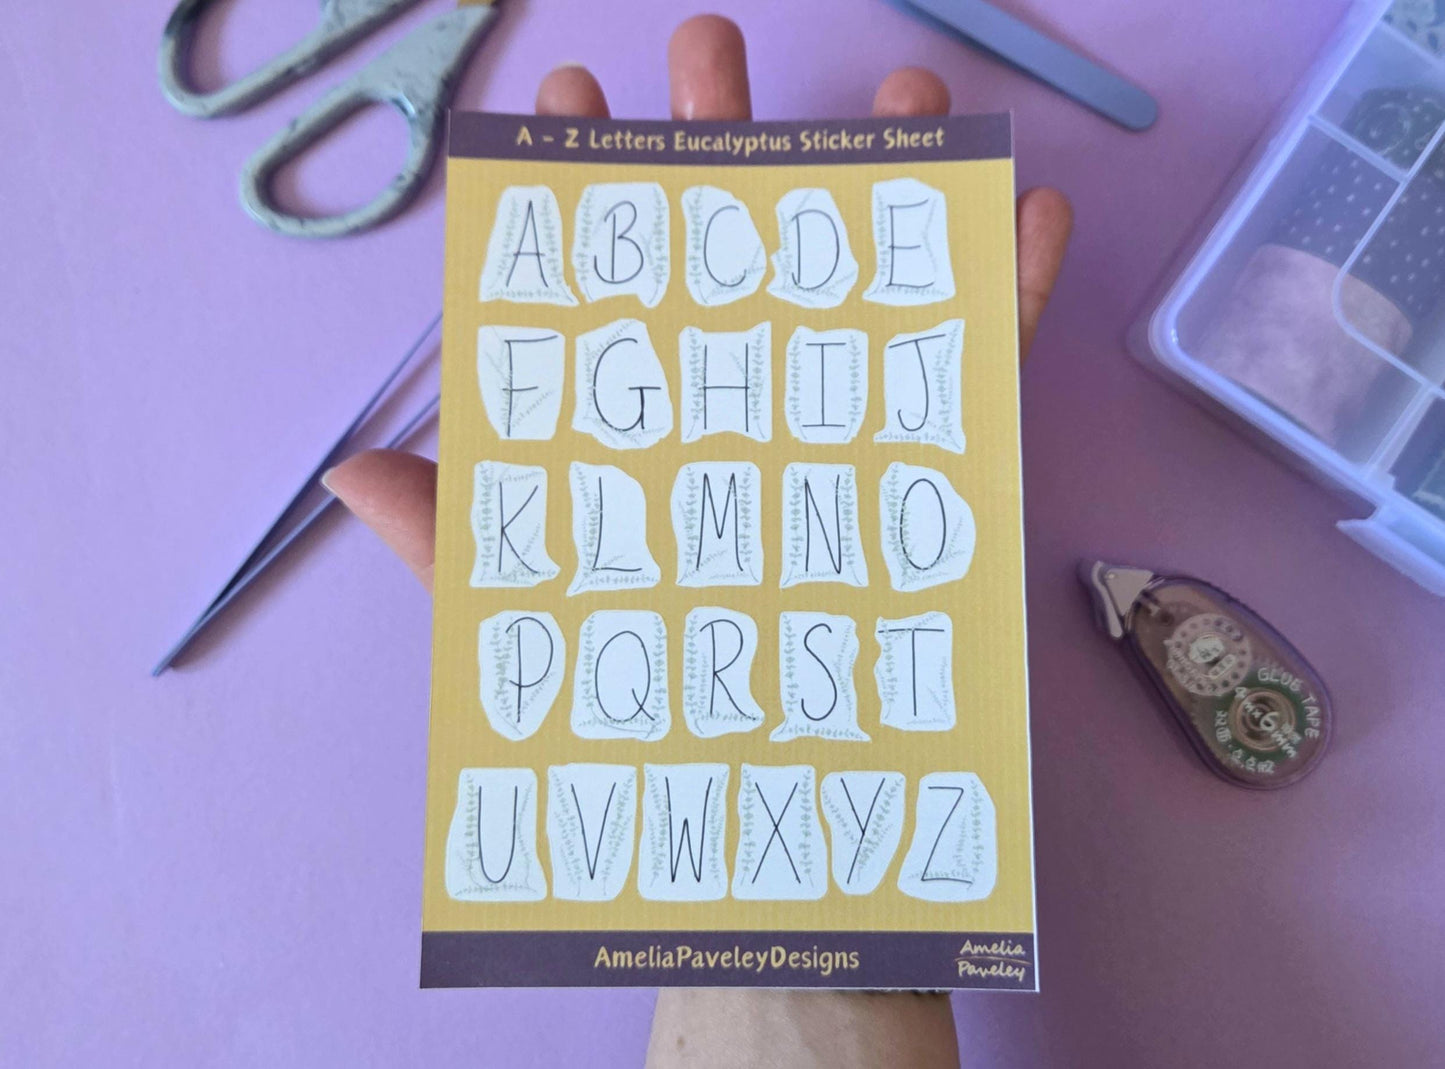 A - Z Letters Eucalyptus Sticker Sheet
A B C D E
F G H I J
K L M N O
P Q R S T
U V W X Y Z
AmeliaPaveleyDesigns
Amelia
Paveley
GLUE TAPE
6mm